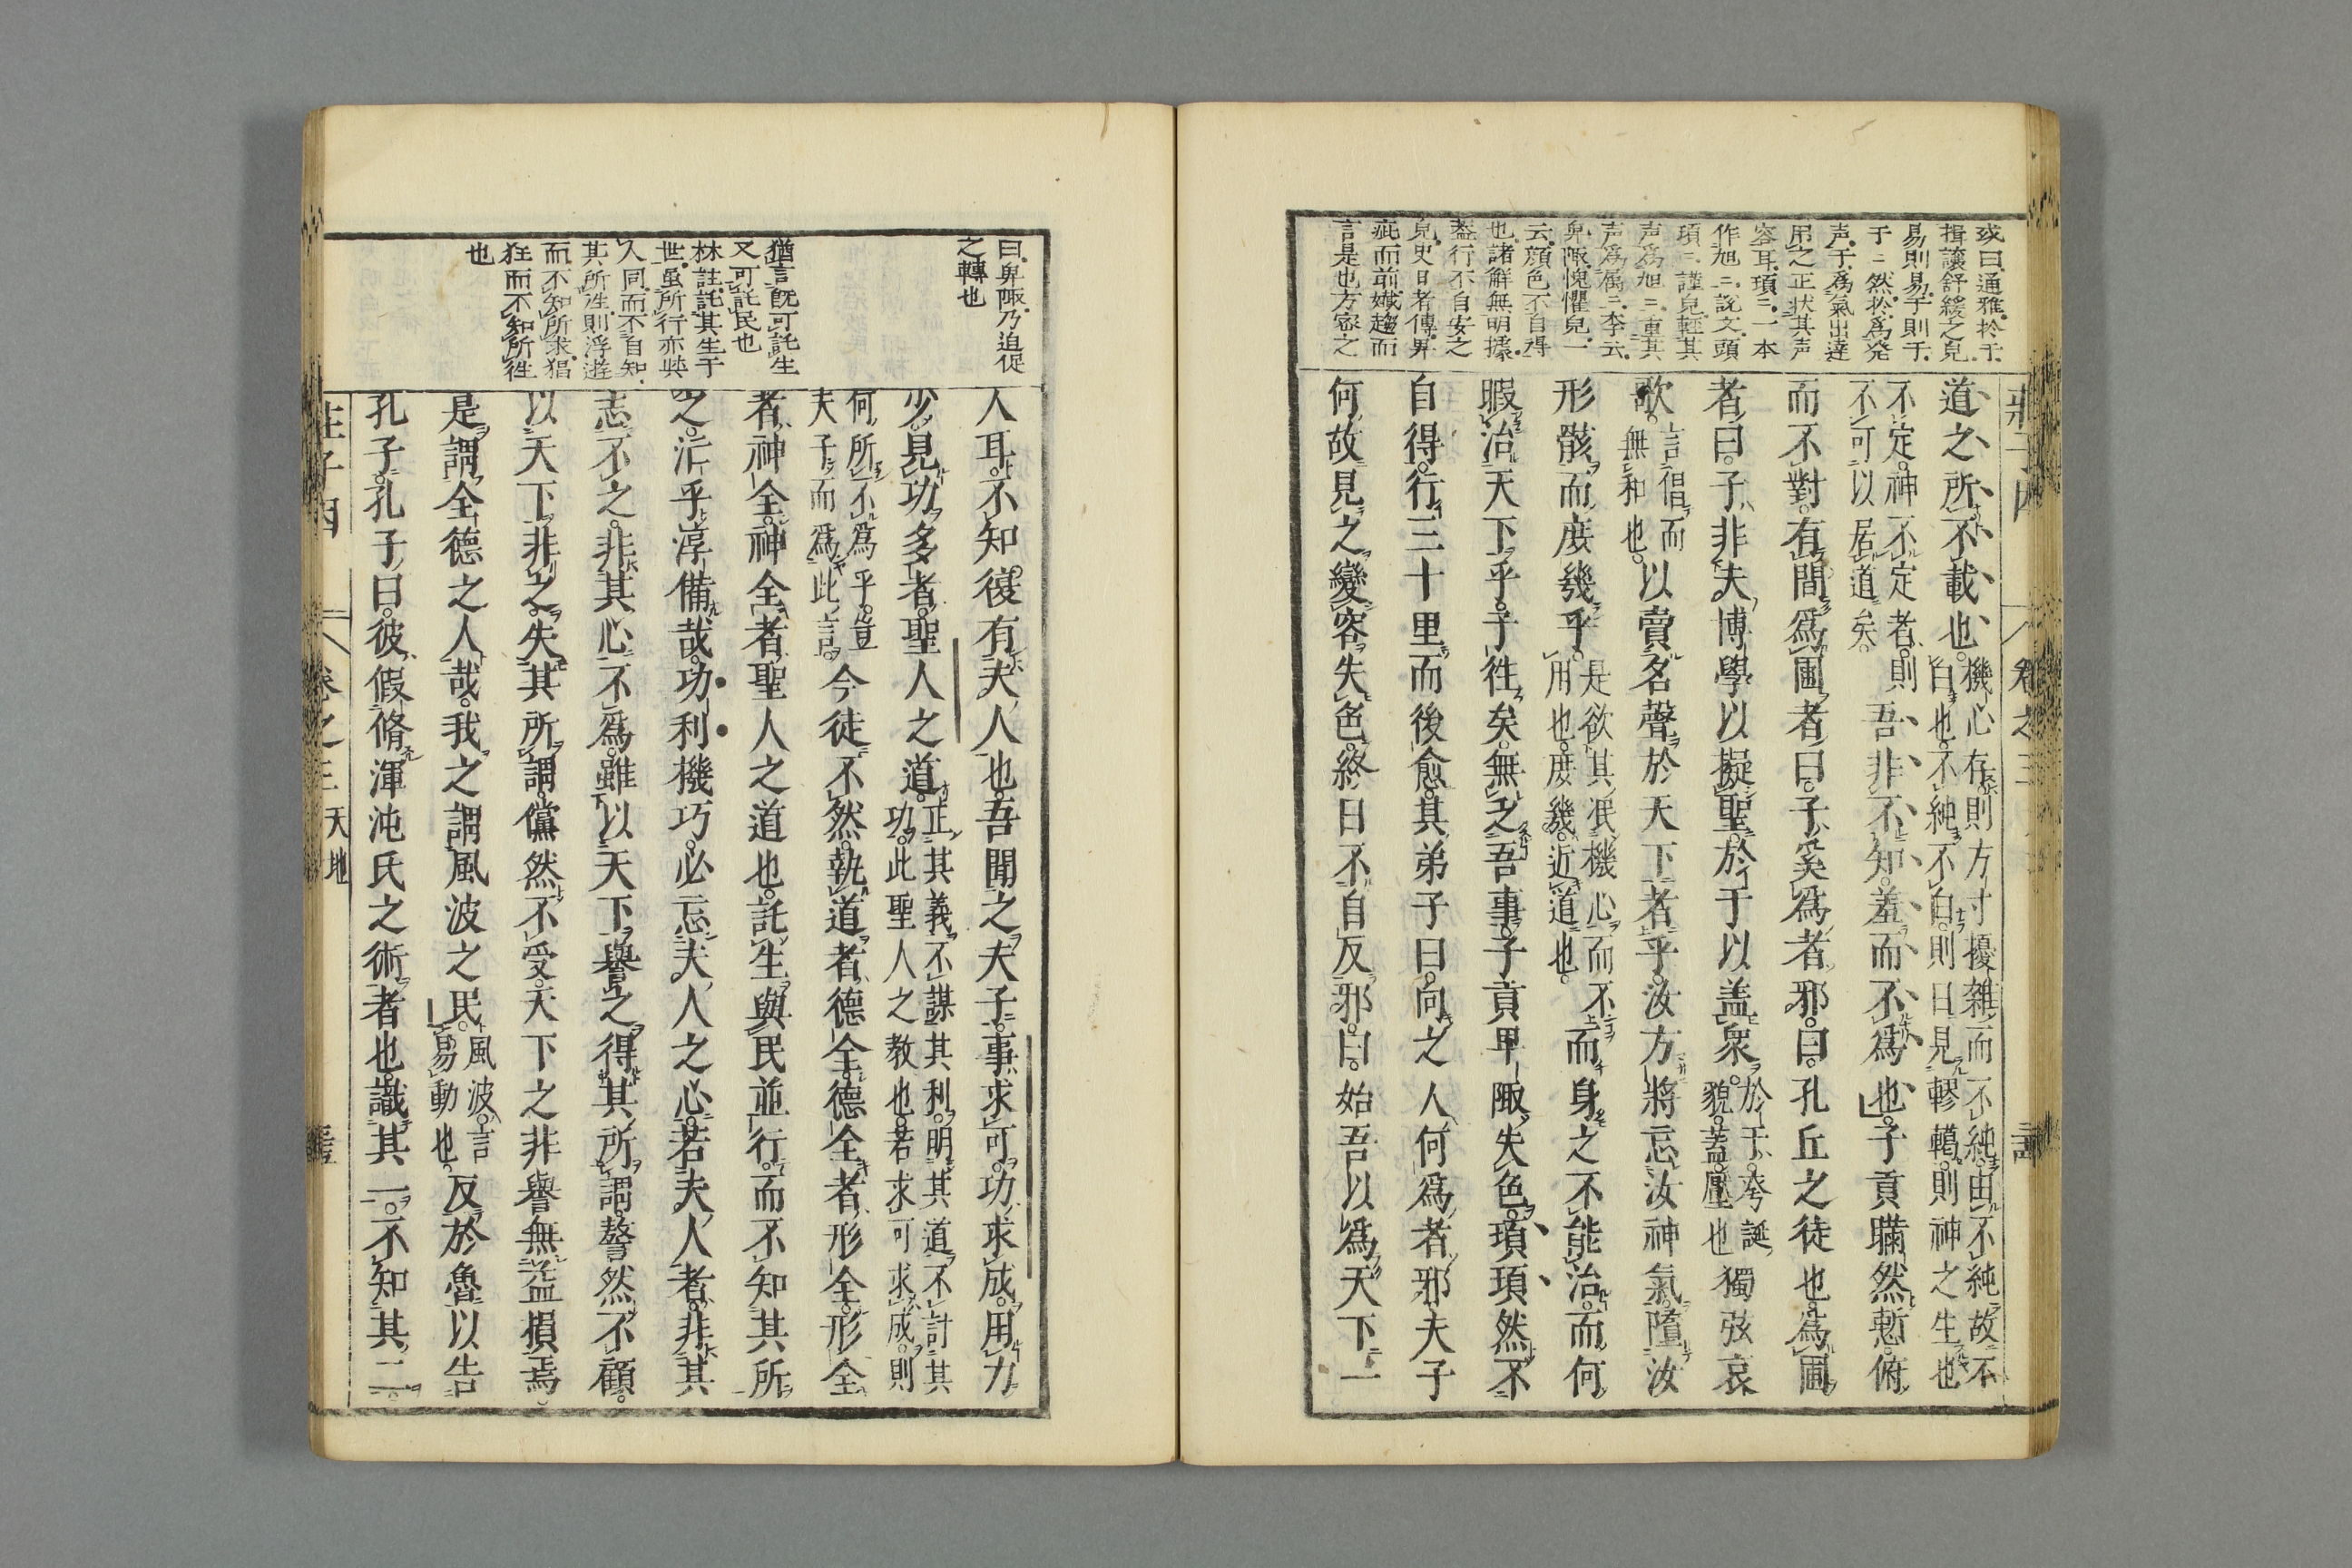 或曰通雅於于
揖讓舒緩之皃
易則易于則于
于二然於爲発
声于爲氣出達
用之正状其声
容耳頊二一本
作旭二說文頭
頊二謹皃輕其
声爲旭二重其
声爲属二李云
卑陬愧懼皃一
云顔色不自得
也諸解無明據
盖行不自安之
皃史日者傳卑
疵而前孅趨而
言是也方密之
道之所不載也機心存則方寸擾雜而不純白不純故不
白也不純不白則日見轇轕則神之生也
不定神不定者則
不可以居道矣吾非不知羞而不爲也子貢瞞然慙俯
而不對有間爲圃者曰子奚爲者邪曰孔丘之徒也爲圃
者曰子非夫博學以擬聖於于以盖衆於于夸誕
貌蓋壓也獨弦哀
歌言倡而
無和也以賣名聲於天下者乎汝方將忘汝神氣墮汝
形骸而庶幾乎是欲其泯機心而不
用也庶幾近道也而身之不能治而何
暇治天下乎子徃矣無乏吾事子貢卑陬失色頊頊然不
自得行三十里而後愈其弟子曰向之人何爲者邪夫子
何故見之變容失色終日不自反邪曰始吾以爲天下一
曰卑陬乃迫促
之轉也
猶言既可託生
又可託民也
林註託其生于
世虽所行亦與
人同而不自知
其所徃則浮遊
而不知所求猖
狂而不知所徃
也
人耳不知復有夫人也吾聞之夫子事求可功求成用力
少見功多者聖人之道正其義不謀其利明其道不計其
功此聖人之教也若求可求成則
何所不爲乎豈
夫子而爲此言今徒不然執道者德全德全者形全形全
者神全神全者聖人之道也託生與民並行而不知其所
之汒乎淳備哉功利機巧必忘夫人之心若夫人者非其
志不之非其心不爲雖以天下譽之得其所謂謷然不顧
以天下非之失其所謂儻然不受天下之非譽無益損焉
是謂全德之人哉我之謂風波之民風波言
易動也反於魯以告
孔子孔子曰彼假脩渾沌氏之術者也識其一不知其二
卷之三 天地